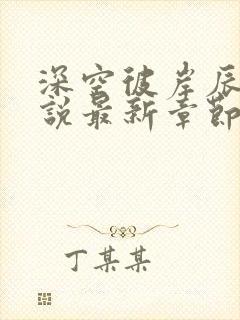 深空彼岸辰
說最新章節
丁某某